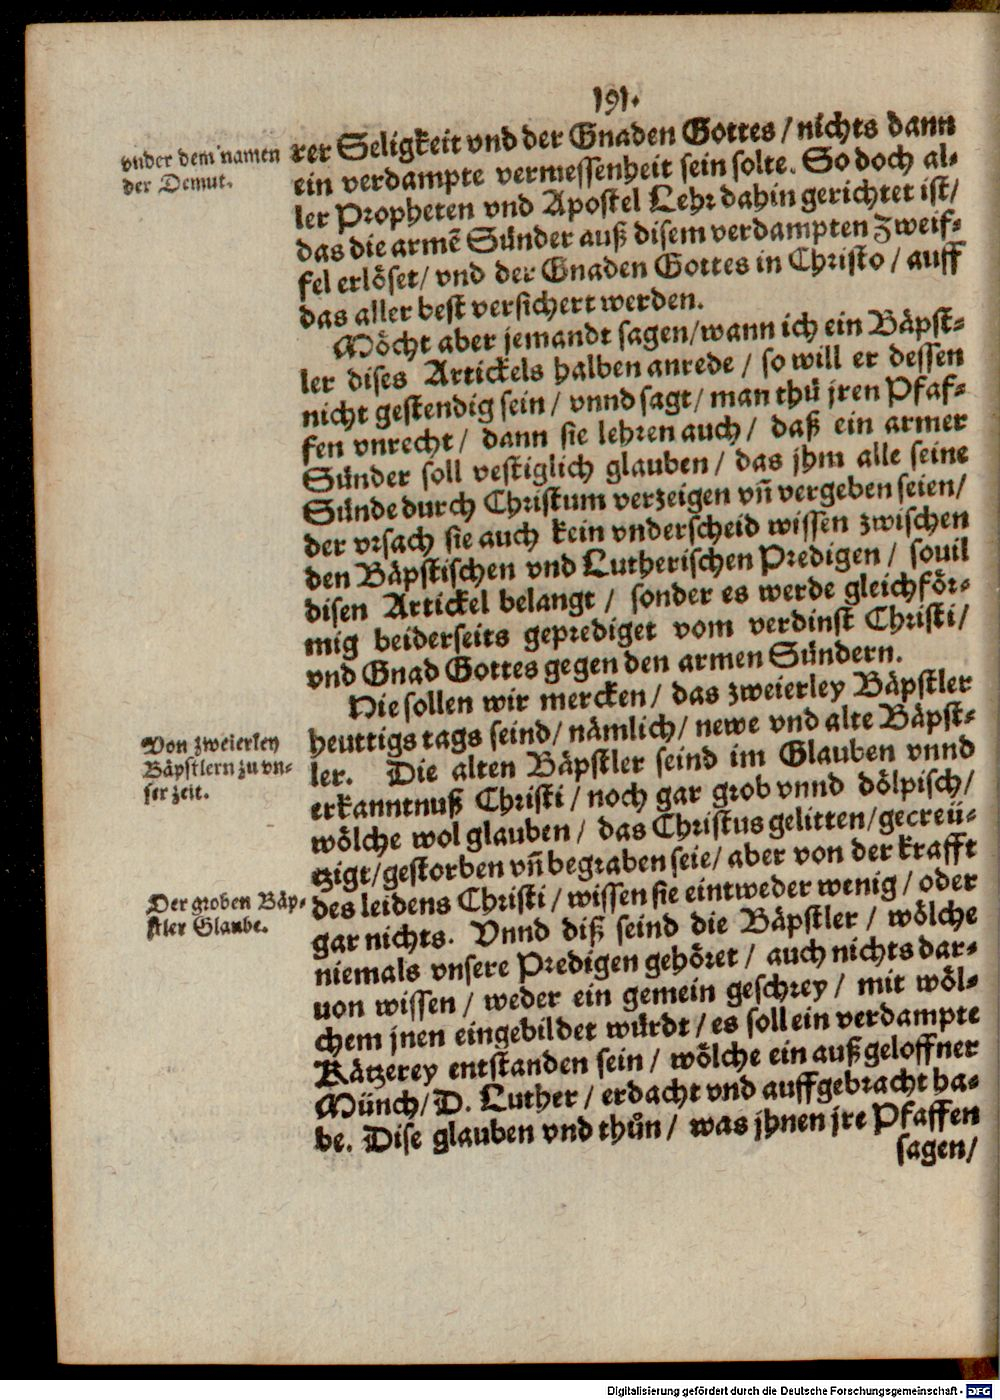 191.
vnder dem namen
der Demut.
rer Seligkeit vnd der Gnaden Gottes / nichts dann
ein verdampte vermessenheit sein solte. So doch al-
ler Propheten vnd Apostel Lehr dahin gerichtet ist/
das die armē Sünder auß disem verdampten Zweif-
fel erlöset/ vnd der Gnaden Gottes in Christo / auff
das aller best versichert werden.
Möcht aber jemandt sagen/wann ich ein Bäpst-
ler dises Artickels halben anrede / so will er dessen
nicht gestendig sein / vnnd sagt / man thü jren Pfaf-
fen vnrecht / dann sie lehren auch / daß ein armer
Sünder soll vestiglich glauben / das jhm alle seine
Sünde durch Christum verzeigen vn̄ vergeben seien/
der vrsach sie auch kein vnderscheid wissen zwischen
den Bäpstischen vnd Lutherischen Predigen / souil
disen Artickel belangt / sonder es werde gleichför-
mig beiderseits geprediget vom verdinst Christi/
vnd Gnad Gottes gegen den armen Sündern.
Hie sollen wir mercken / das zweierley Bäpstler
heuttigs tags seind/ nämlich/ newe vnd alte Bäpst-
ler. Die alten Bäpstler seind im Glauben vnnd
erkanntnuß Christi / noch gar grob vnnd dölpisch/
wölche wol glauben / das Christus gelitten/gecreü-
tzigt/gestorben vn̄ begraben seie/ aber von der krafft
des leidens Christi / wissen sie eintweder wenig / oder
gar nichts. Vnnd diß seind die Bäpstler / wölche
niemals vnsere Predigen gehöret / auch nichts dar-
uon wissen / weder ein gemein geschrey / mit wöl-
chem jnen eingebildet würdt / es soll ein verdampte
Kätzerey entstanden sein / wölche ein außgeloffner
Münch/ D. Luther / erdacht vnd auffgebracht ha-
be. Dise glauben vnd thůn / was jhnen jre Pfaffen
sagen/
Von zweierley
Bäpstlern zu vn-
ser zeit.
Der groben Bäp-
stler Glaube.
Digitalisierung gefördert durch die Deutsche Forschungsgemeinschaft - DFG